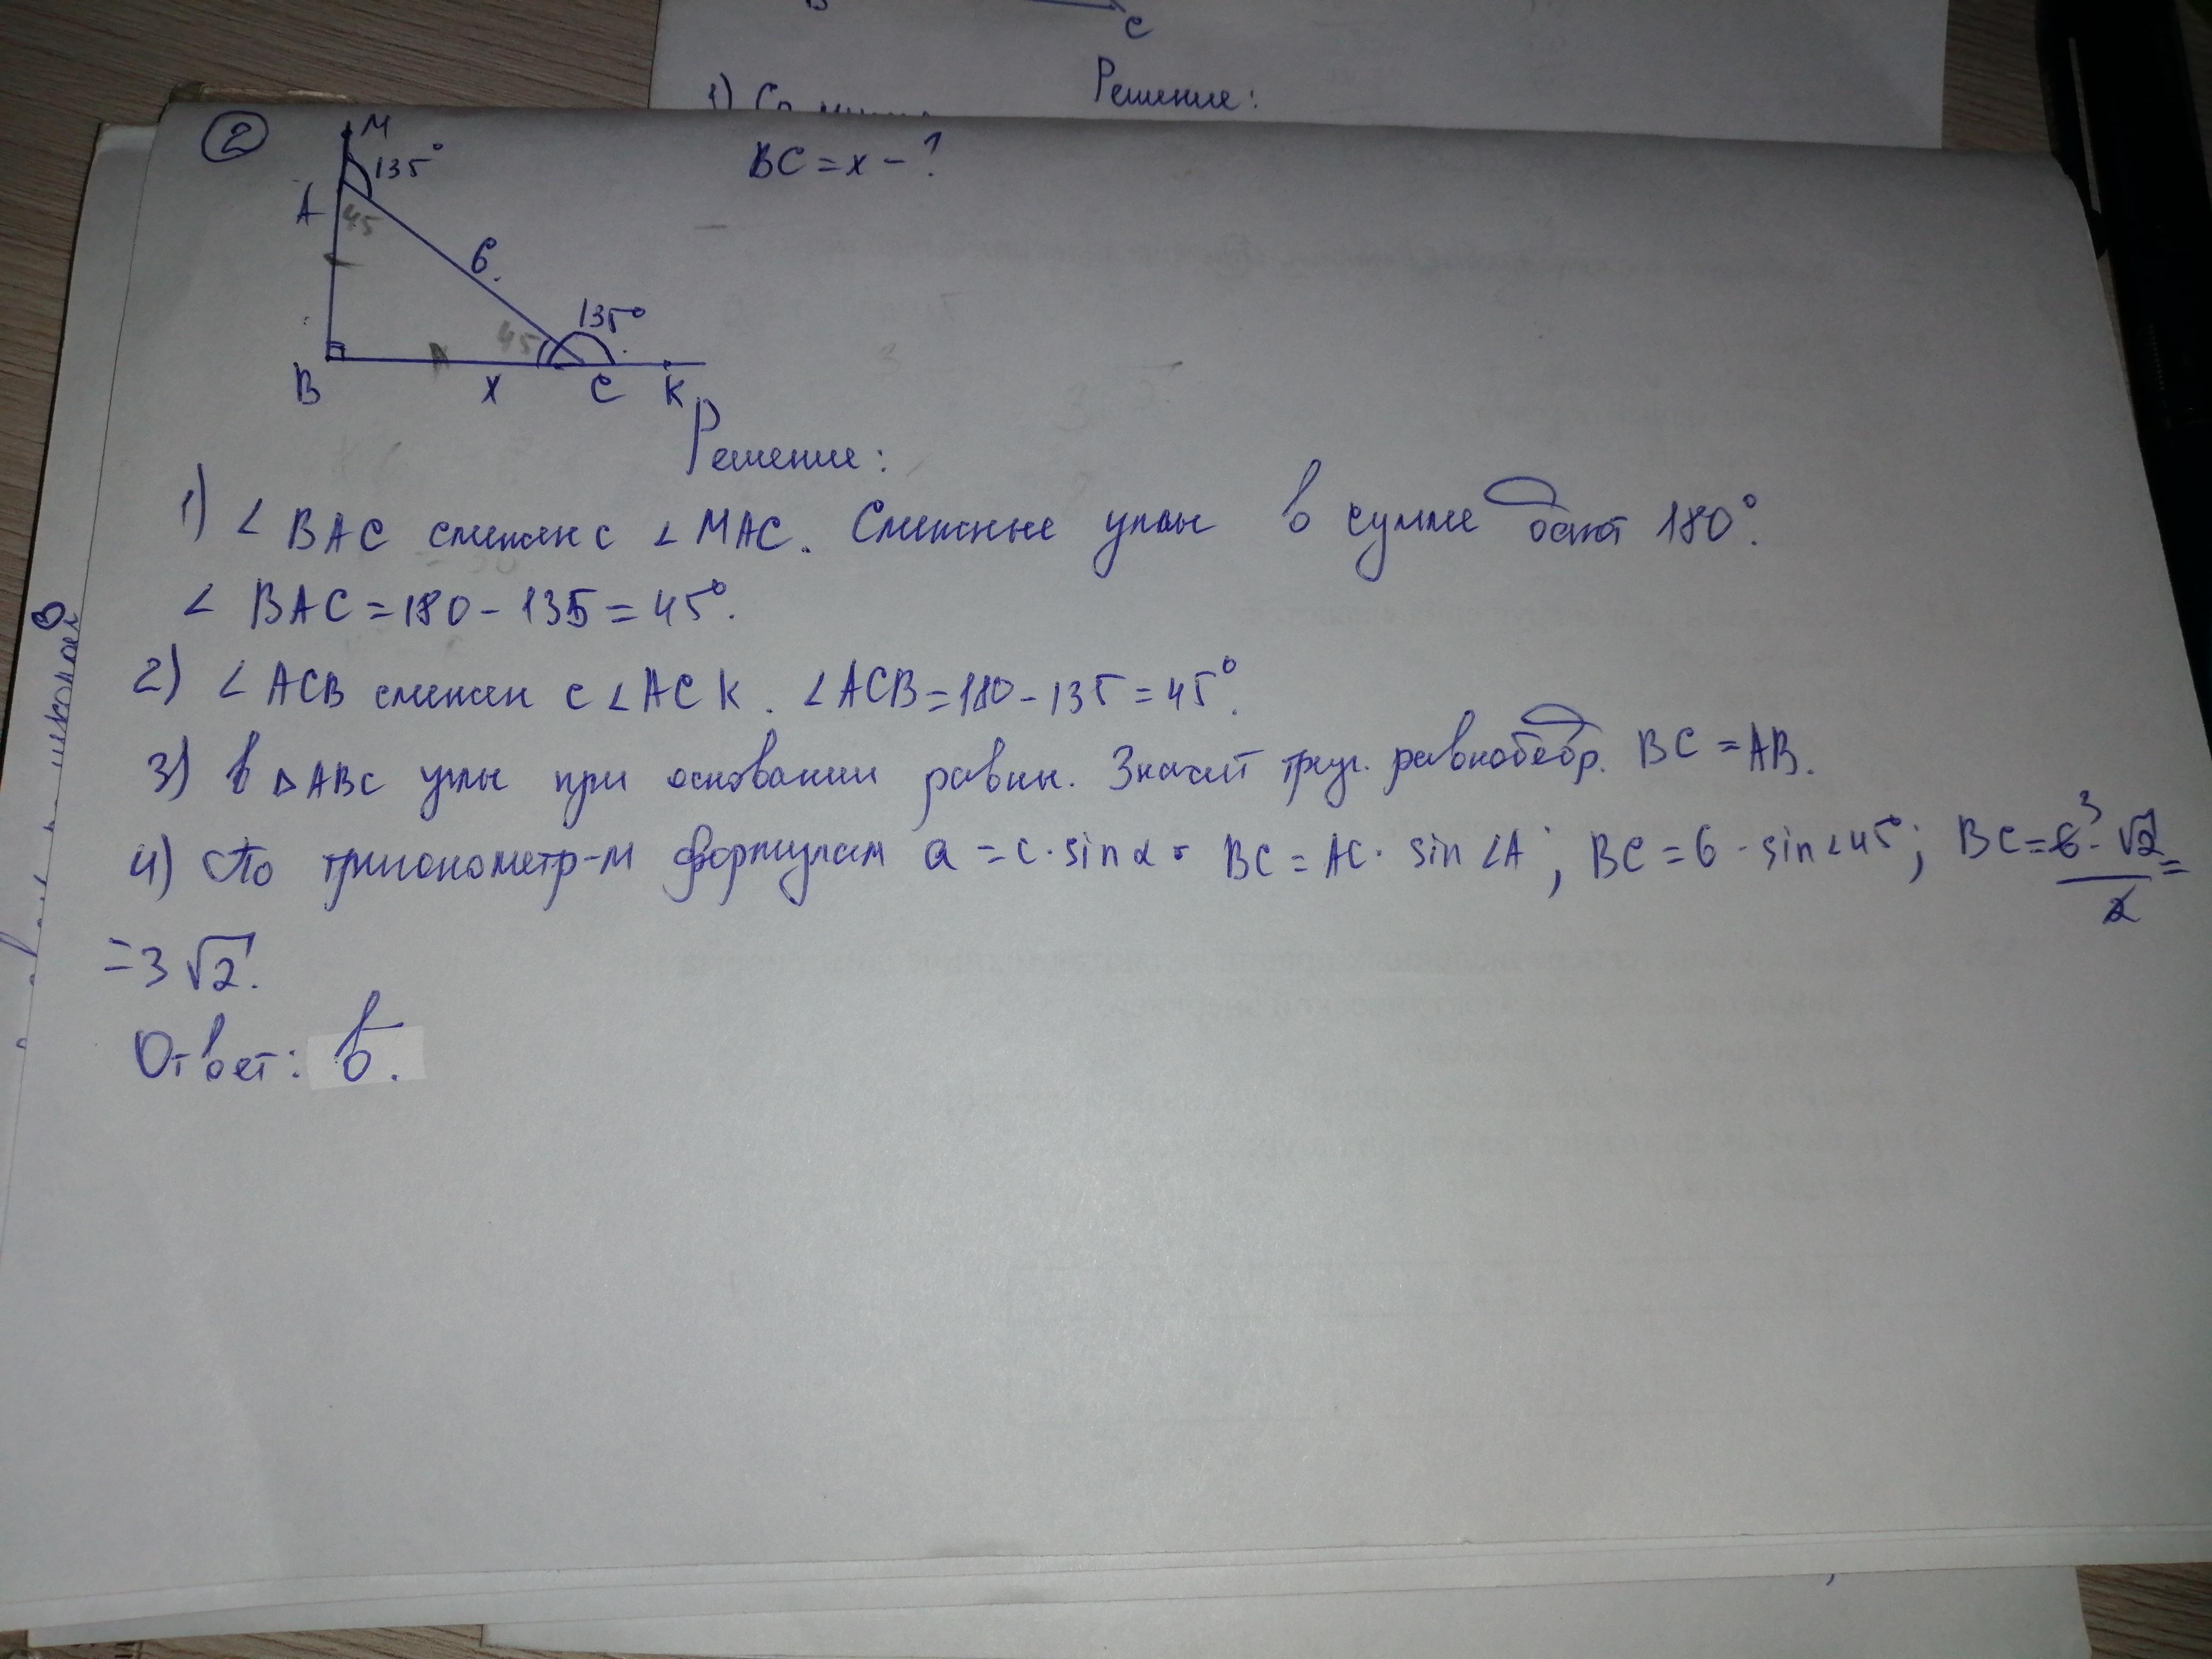 C
Решение:
1)
2
M
135°
BC = x - ?
A
45
6
135°
45
B
x
C
K
Решение:
1) ∠ BAC смежен с ∠ MAC. Смежные углы в сумме дают 180°.
∠ BAC = 180 - 135 = 45°.
2) ∠ ACB смежен с ∠ ACK. ∠ ACB = 180 - 135 = 45°.
3) В △ ABC углы при основании равны. Значит треуг. равнобедр. BC = AB.
4) По тригонометр-м формулам a = c · sin α. BC = AC · sin ∠A; BC = 6 · sin ∠45°; BC = 6 3 · √2 / 2 =
= 3 √2.
Ответ: в.